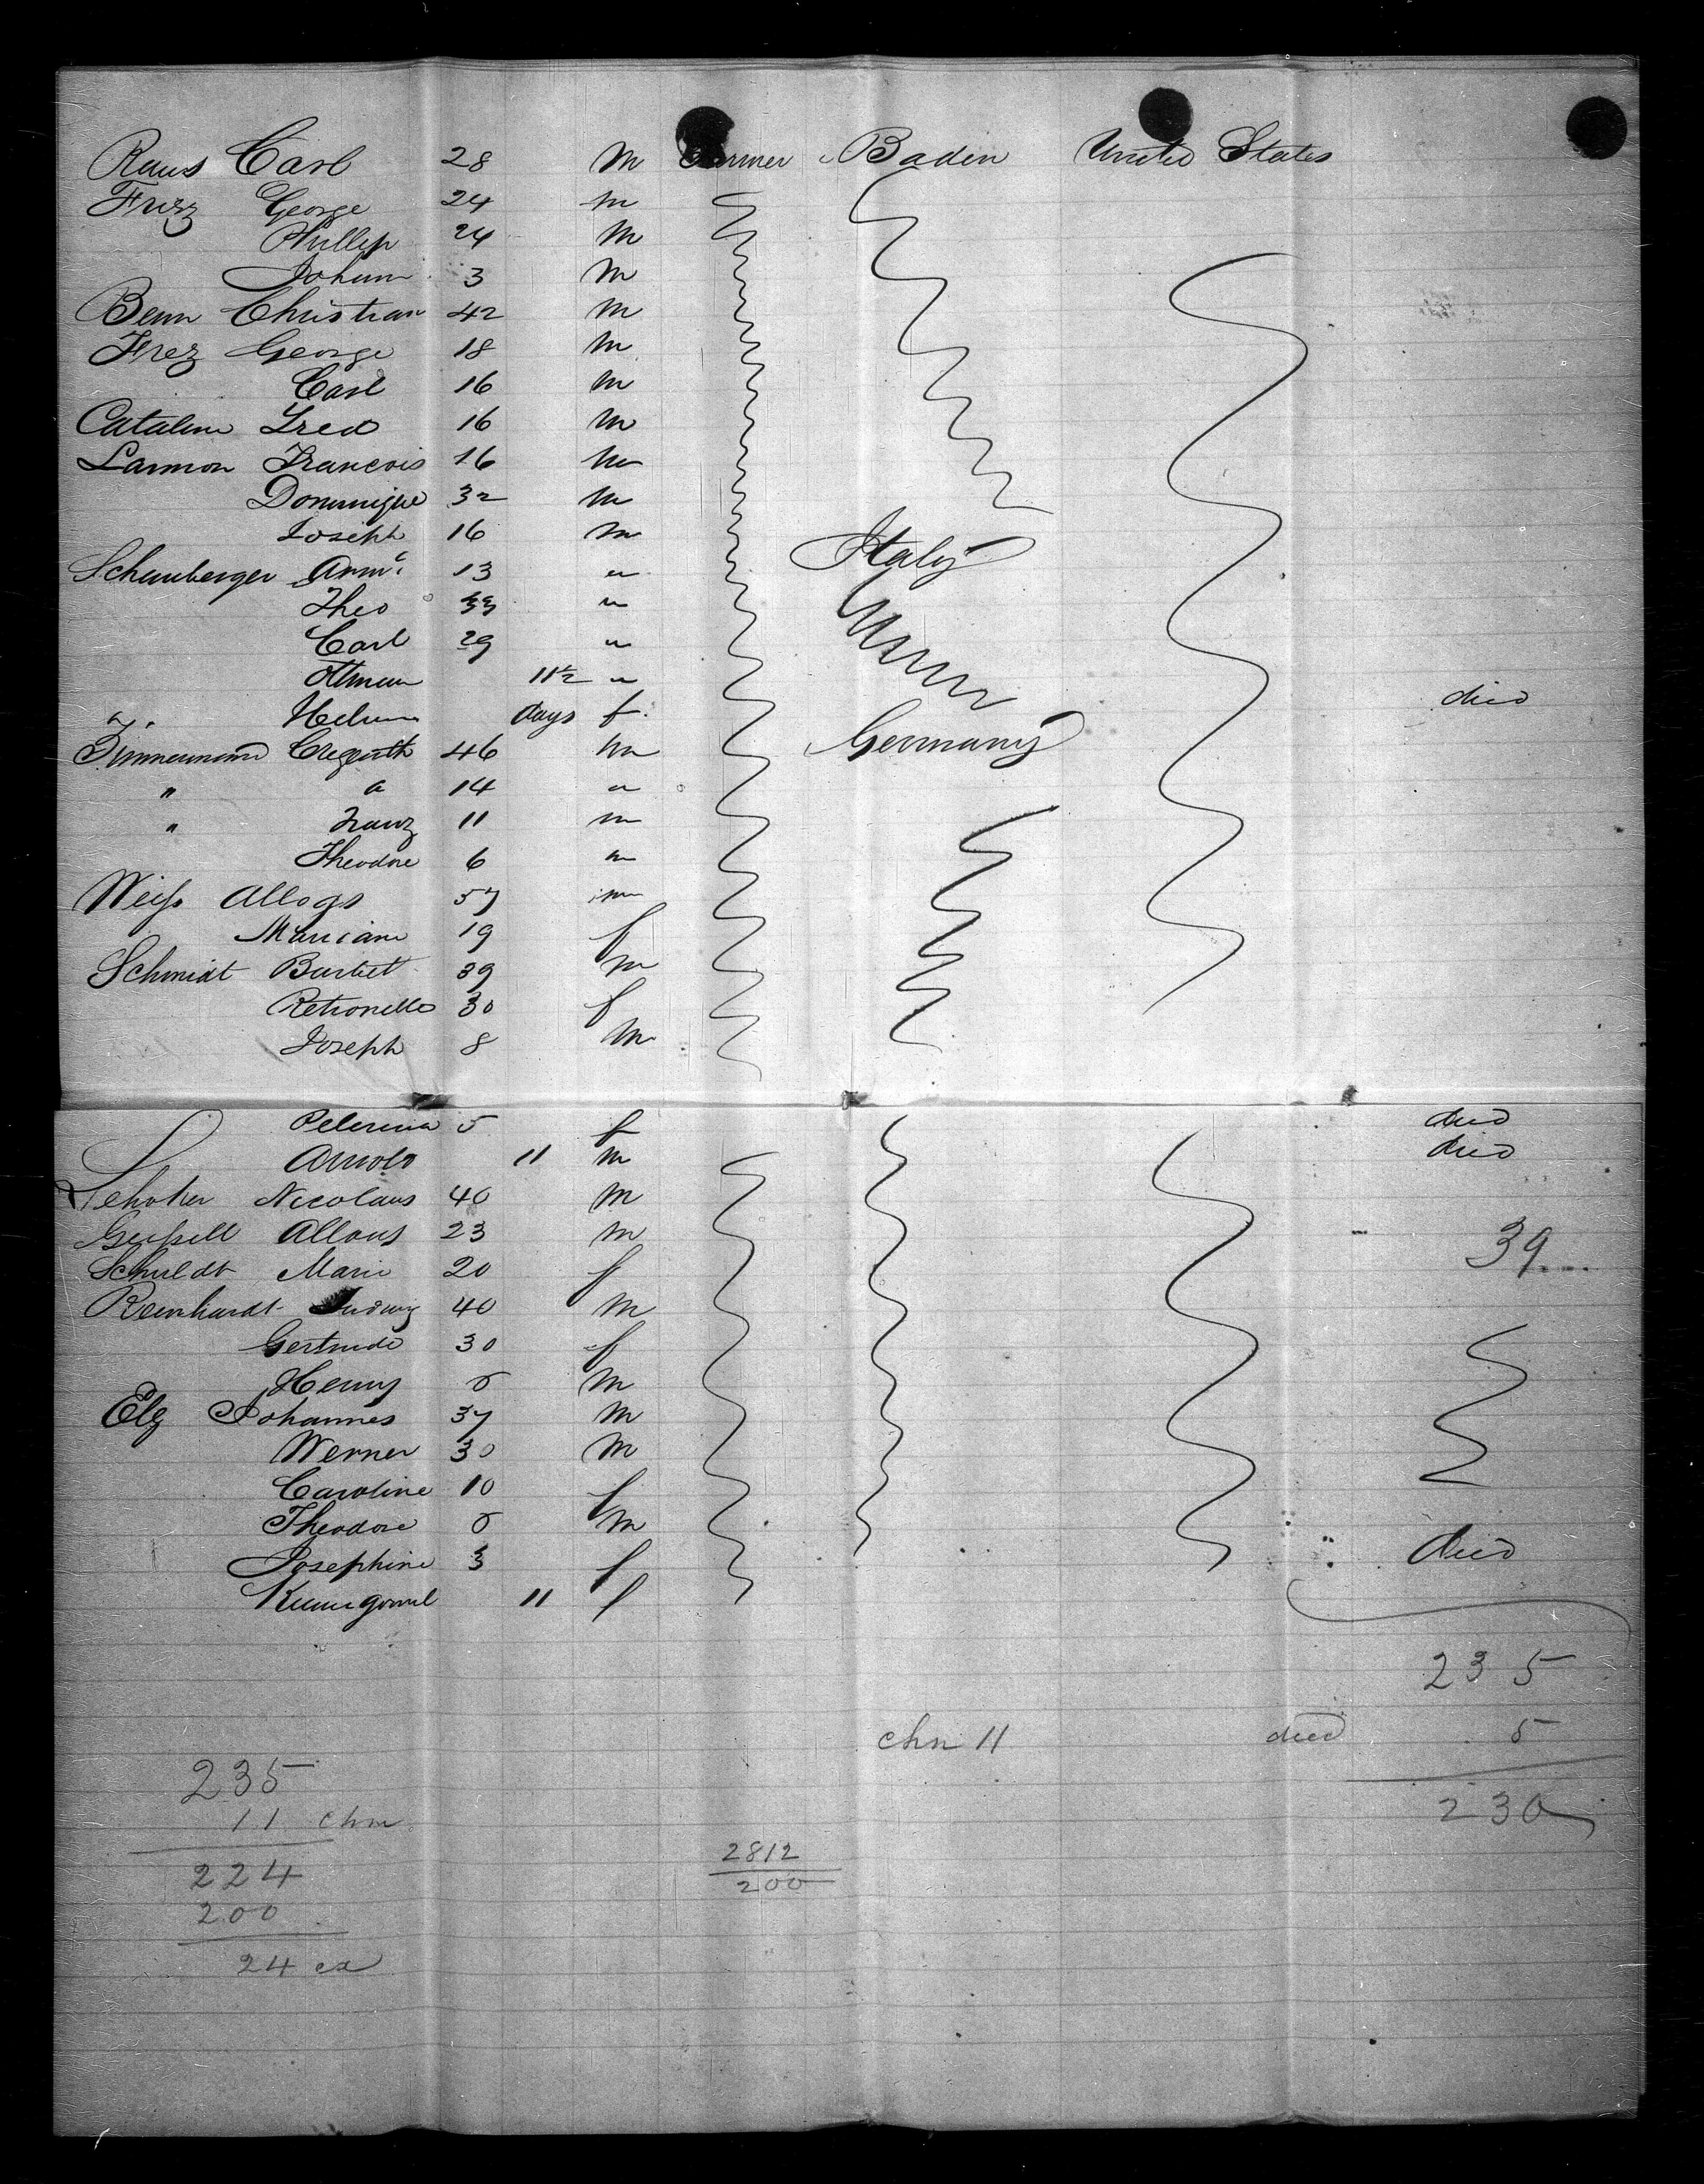 Raus Carl 28 m Farmer Baden United States
Frizz George 24 m
Phillip 24 m
Johann 3 m
Benn Christian 42 m
Frez George 18 m
Carl 16 m
Catalini Fred 16 m
Larmon Francois 16 m
Dominique 32 m
Joseph 16 m
Italy
Schauberger 13
Theo 33
Carl 29
Ottman 11½
days f died
Zimmermann 46 m Germany
" a 14
" Franz 11 m
Theodore 6 m
Weiss Alloys 57 m
Mariann 19 f
Schmidt 39 m
Petronelle 30 f
Joseph 8 m
5 f died
Arnold 11 m died
Schoker Nicolaus 40 m
Allous 23 m 39
Schuldt Marie 20 f
Reinhardt Ludwig 40 m
Gertrude 30 f
Henry 5 m
Elg Johannes 37 m
Werner 30 m
Caroline 10 f
Theodore 5 m
Josephine 3 f died
11 f
235
chn 11 died 5
235 230
11 chn
2812
224 200
200
24 ea